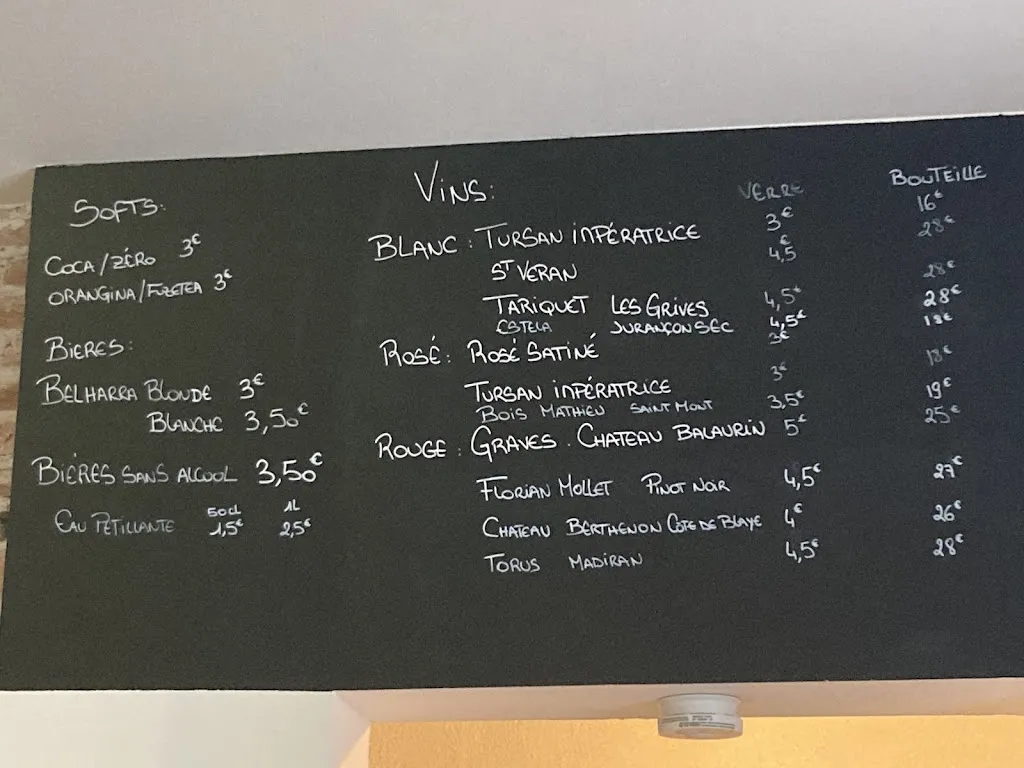 SOFTS:
COCA/ZÉRO 3€
ORANGINA/FUZETEA 3€
BIERES:
BELHARRA BLONDE 3€
BLANCHE 3,50€
BIÈRES SANS ALCOOL 3,50€
50cl 1L
EAU PETILLANTE 1,5€ 2,5€
VINS: VERRE BOUTEILLE
BLANC: TURSAN IMPÉRATRICE 3€ 16€
ST VERAN 4,5€ 28€
TARIQUET LES GRIVES 4,5€ 28€
ESTELA JURANÇON SEC 4,5€ 28€
ROSÉ: ROSÉ SATINÉ 3€ 18€
TURSAN IMPÉRATRICE 3€ 18€
BOIS MATHIEU SAINT MONT 3,5€ 19€
ROUGE: GRAVES. CHATEAU BALAURIN 5€ 25€
FLORIAN MOLLET PINOT NOIR 4,5€ 27€
CHATEAU BERTHENON COTE DE BLAYE 4€ 26€
TORUS MADIRAN 4,5€ 28€